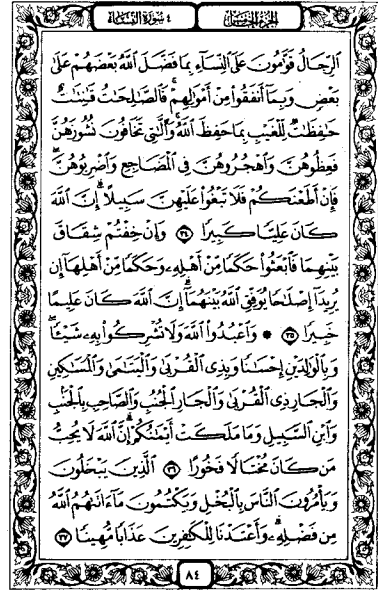 الجزء الخامس
٤ سورة النساء
ٱلرِّجَالُ قَوَّٰمُونَ عَلَى ٱلنِّسَآءِ بِمَا فَضَّلَ ٱللَّهُ بَعْضَهُمْ عَلَىٰ
بَعْضٍ وَبِمَآ أَنفَقُواْ مِنْ أَمْوَٰلِهِمْ ۚ فَٱلصَّٰلِحَٰتُ قَٰنِتَٰتٌ
حَٰفِظَٰتٌ لِّلْغَيْبِ بِمَا حَفِظَ ٱللَّهُ ۚ وَٱلَّٰتِي تَخَافُونَ نُشُوزَهُنَّ
فَعِظُوهُنَّ وَٱهْجُرُوهُنَّ فِي ٱلْمَضَاجِعِ وَٱضْرِبُوهُنَّ ۖ
فَإِنْ أَطَعْنَكُمْ فَلَا تَبْغُواْ عَلَيْهِنَّ سَبِيلًا ۗ إِنَّ ٱللَّهَ
كَانَ عَلِيًّا كَبِيرًا ٣٤ وَإِنْ خِفْتُمْ شِقَاقَ
بَيْنِهِمَا فَٱبْعَثُواْ حَكَمًا مِّنْ أَهْلِهِۦ وَحَكَمًا مِّنْ أَهْلِهَآ إِن
يُرِيدَآ إِصْلَٰحًا يُوَفِّقِ ٱللَّهُ بَيْنَهُمَآ ۗ إِنَّ ٱللَّهَ كَانَ عَلِيمًا
خَبِيرًا ٣٥ ۞ وَٱعْبُدُواْ ٱللَّهَ وَلَا تُشْرِكُواْ بِهِۦ شَيْـًٔا ۖ
وَبِٱلْوَٰلِدَيْنِ إِحْسَٰنًا وَبِذِي ٱلْقُرْبَىٰ وَٱلْيَتَٰمَىٰ وَٱلْمَسَٰكِينِ
وَٱلْجَارِ ذِي ٱلْقُرْبَىٰ وَٱلْجَارِ ٱلْجُنُبِ وَٱلصَّاحِبِ بِٱلْجَنۢبِ
وَٱبْنِ ٱلسَّبِيلِ وَمَا مَلَكَتْ أَيْمَٰنُكُمْ ۗ إِنَّ ٱللَّهَ لَا يُحِبُّ
مَن كَانَ مُخْتَالًا فَخُورًا ٣٦ ٱلَّذِينَ يَبْخَلُونَ
وَيَأْمُرُونَ ٱلنَّاسَ بِٱلْبُخْلِ وَيَكْتُمُونَ مَآ ءَاتَىٰهُمُ ٱللَّهُ
مِن فَضْلِهِۦ ۗ وَأَعْتَدْنَا لِلْكَٰفِرِينَ عَذَابًا مُّهِينًا ٣٧
٨٤